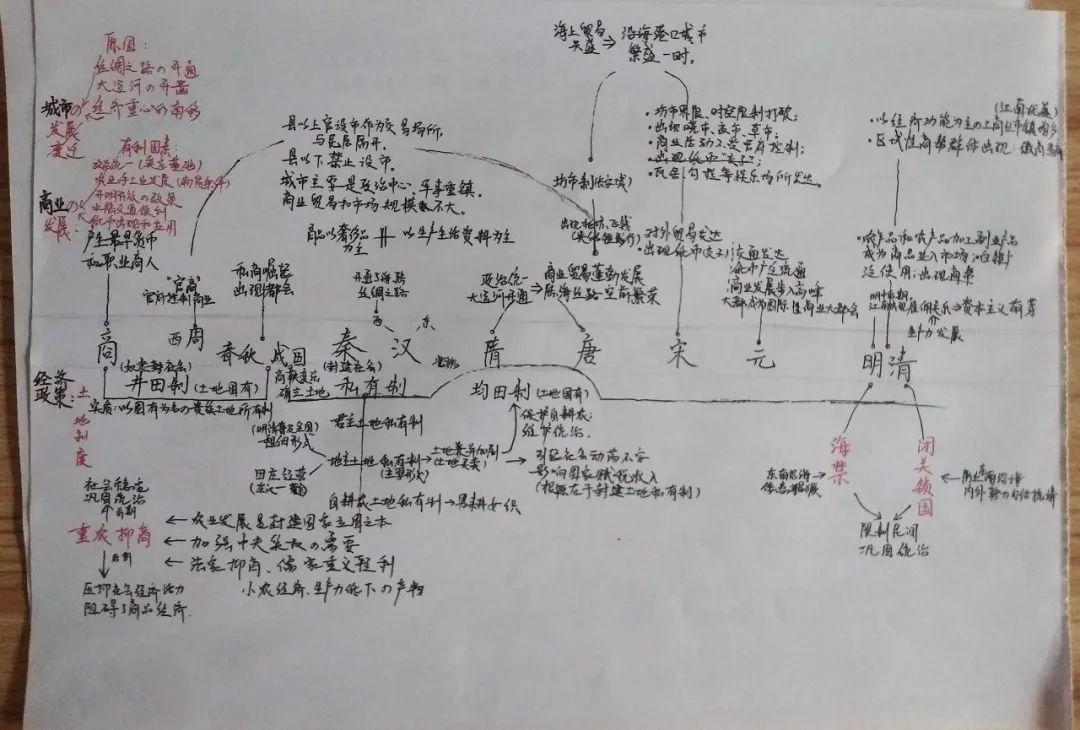 原因：
丝绸之路の开通
大运河の开凿
经济重心の南移
城市の
发展
变迁
有利因素：
政治统一
农业手工业发展
开明开放の政策
水陆交通便利
纸币出现和应用
商业の
发展：
海上贸易
兴盛
沿海港口城市
繁盛一时。
县以上官设市作为交易场所，
与居民隔开。
县以下禁止设市。
城市主要是政治中心、军事重镇。
商业贸易和市场规模不大。
坊市制
·坊市界限、时空限制打破。
·出现晓市、夜市、草市。
·商业活动不受官府控制。
·出现纸币“交子”；
·瓦舍勾栏等娱乐场所发达。
(江南)
·以经济功能为主の工商业市镇
区域性商帮群体出现：徽商
产生最早货币
和职业商人
“官商”
官府控制商业
私商崛起
出现都会
商品以奢侈品
为主
以生产生活资料为主
开通海陆
丝绸之路
政治统一
大运河开通
出现柜坊、飞钱
商业贸易蓬勃发展
陆海丝路空前繁荣
·对外贸易发达
·出现纸币(交子)
交通发达
纸币广泛流通
商业发展步入高峰
大都成为国际性商业大都会
·农产品和农产品加工副业产品
成为商品进入市场；白银广
泛使用；出现商帮
明中后期，
江南出现雇佣关系→资本主义萌芽
生产力发展
商
西周
春秋
战国
秦
汉
隋
唐
宋
元
明清
经济
政策：
土地制度
(奴隶社会)
井田制
(土地国有)
商鞅变法
确立土地
(封建社会)
私有制
北魏
均田制
(土地国有)
实质：以国有为名の贵族土地所有制
保护自耕农；
维护统治。
君主土地私有制
(明清普及全国)
租佃形式
地主土地私有制
(主要形式)
土地兼并加剧
(土地买卖)
田庄经营
(东汉一魏)
引起社会动荡不安
影响国家赋税收入
(根源在于封建土地私有制)
自耕农土地私有制→男耕女织
社会稳定
巩固统治
前期
重农抑商
←农业发展是封建国家立国之本
←加强中央集权の需要
←法家抑商、儒家重义轻利
小农经济、生产力低下の产物
后期
压抑社会经济活力
阻碍了商品经济.
海禁
闭关锁国
东南沿海
限制民间
巩固统治